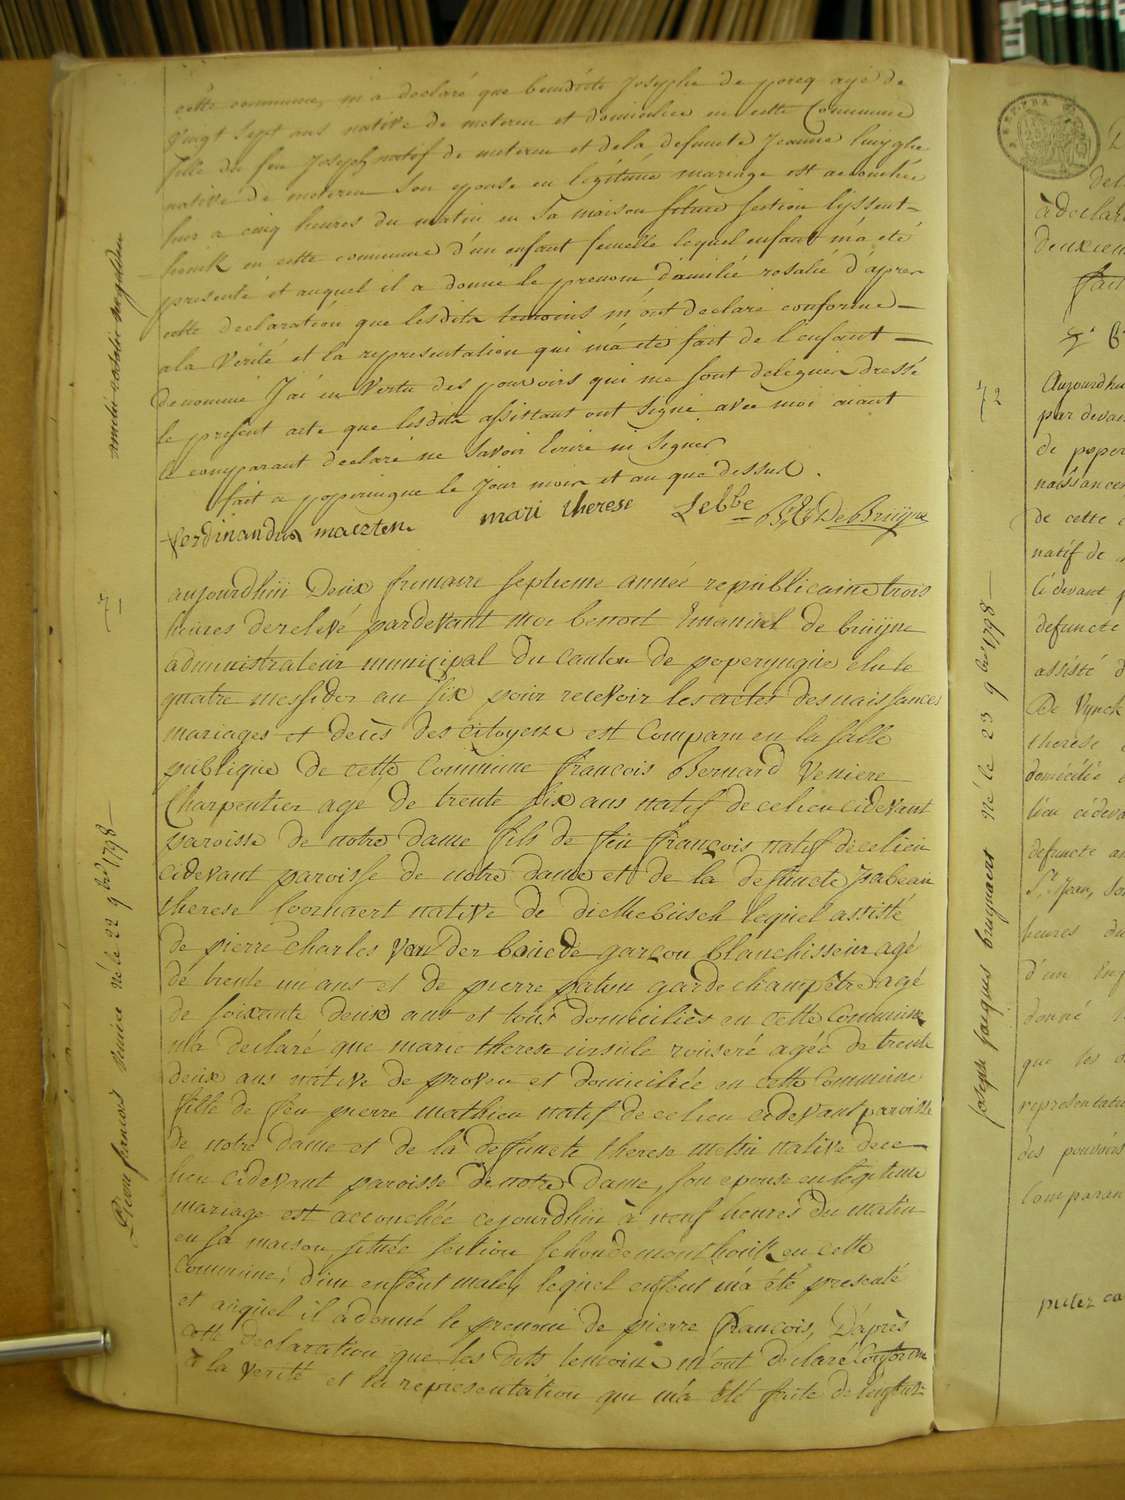 cette commune, m'a declaré que benedicte Josephe de porcq agé de
vingt sept ans native de meteren et domiciliee en cette Commune
fille du feu Joseph natif de meteren et de la defuncte Jeanne
native de meteren son epouse en légitime mariage est accouchée
hier a cinq heures du matin en sa maison située section lyssent-
houck en cette commune d'un enfant femelle lequel enfant m'a été
presenté et auquel il a donné le prenom d'amilié rosalié d'apres
cette declaration que lesdits temoins m'ont declaré conforme
a la verité et la representation qui m'a été fait de l'enfant
denommé J'ai en vertu des pouvoirs qui me sont deleguer dressé
le present acte que lesdits assistant ont signé avec moi aiant
le comparant declaré ne savoir Ecrire ni signer
fait a poperingue le jour mois et an que dessus.
ferdinandus maerten mari therese Lebbe B: E: DeBruÿne
71
aujourdhüi Deux frimaire septieme année republicaine trois
heures derelevé pardevant moi benoit Emanüel de brüÿne
administrateür münicipal Du canton de poperyngüe elu le
quatre messidor an six poür recevoir les actes des naissances
mariages et decès des citoyens est Comparu en la salle
publique de cette Commune françois Bernard Veniere
Charpentier age de trente six ans natif de ce lieu cidevant
paroisse de notre dame fils de feu françois natif de ce lieu
cidevant paroisse de notre dame et de la deffuncte isabeau
therese Coornaert native de dickebüsch lequel assisté
de pierre Charles Van der garçon blanchisseur agé
de trente un ans et de pierre patou garde champetre agé
de soixante deux ans et tous domiciliés en cette Commune
m'a declaré que marie therese ürsule agée de trente
deux ans native de proven et domiciliée en cette Commune
fille de feu pierre mathieu natif de ce lieu cidevant paroisse
de notre dame et de la deffuncte therese native de ce
lieu cidevant paroisse de notre dame, son epouse en légitime
mariage est accouchée cejourdhüi à neuf heures du matin
en sa maison située section en cette
Commune, d'un enffent male, lequel enffent m'a été presenté
et auquel il a donné le prenom de pierre françois, D'après
cette declaration que les dits temoins m'ont declaré conforme
à la verité et la representation qui m'a été faite de l'enffent
né le 22 9bre 1798
72
Joseph Jacques né le 23 9bre 1798
à declar
deuxiem
fait
Aujourdhu
par devan
de poper
naissance
de cette
natif de
cidevant
defuncte
assisté d
De Vynck
therese
domiciliée
lieu cideva
defuncte
St Jean, so
heures du
d'un enf
donné
que les
representatio
des pouvoirs
Comparan